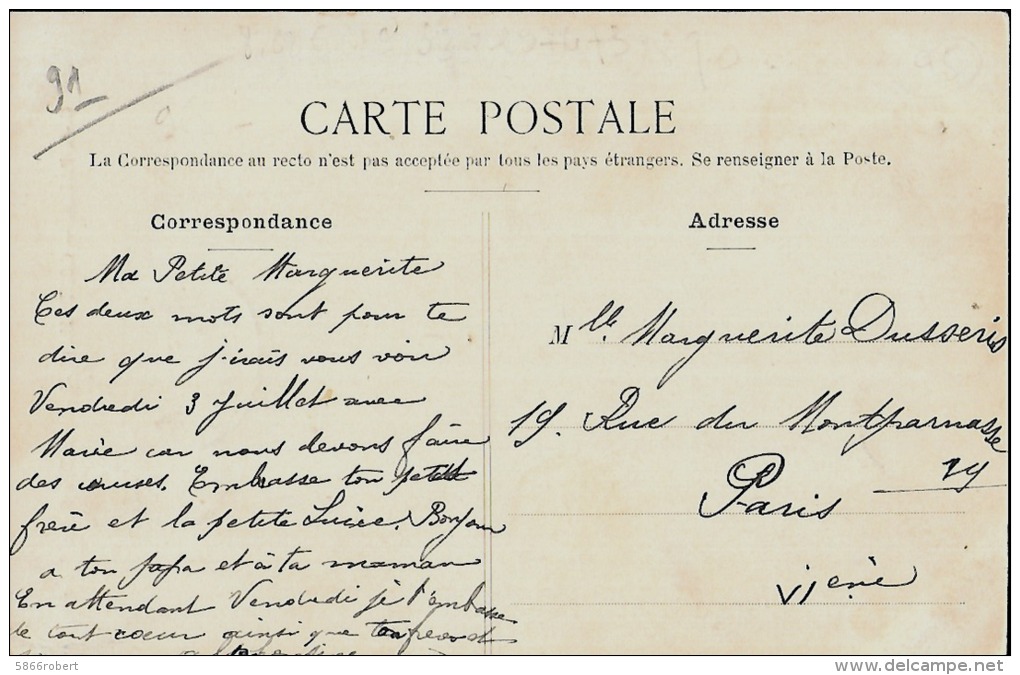 91
CARTE POSTALE
La Correspondance au recto n'est pas acceptée par tous les pays étrangers. Se renseigner à la Poste.
Correspondance
Ma Petite Marguerite
Ces deux mots sont pour te
dire que j'irais vous voir
Vendredi 3 Juillet avec
Marie car nous devons faire
des courses. Embrasse ton petit
frère et la petite Bonjour
a ton papa et à ta maman
En attendant Vendredi je t'embrasse
de tout coeur ainsi que
Adresse
Mlle Marguerite Dusseris
19. Rue du Montparnasse
19
Paris
VIeme
5866robert
delcampe.net